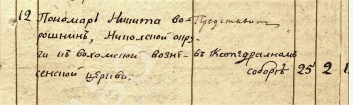 12 Пономарь Никита во- Представитъ
рошнинъ, Никольской окру-
ги изъ вохомской возне- въ Катедральномъ
сенской церкви. соборѣ 25 2